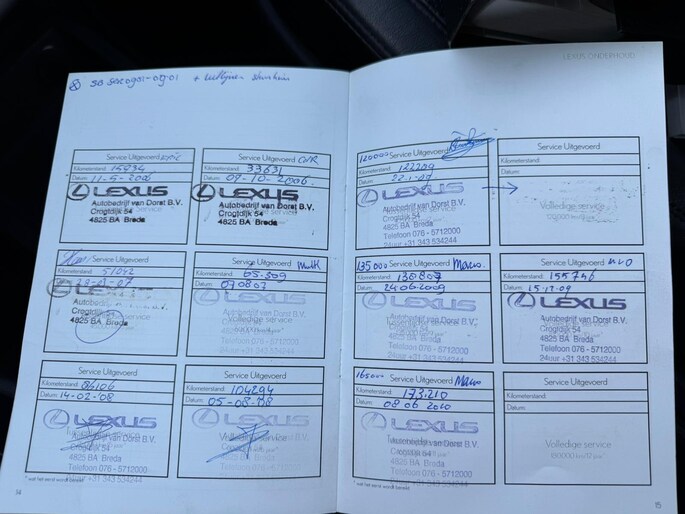 SB
LEXUS ONDERHOUD
Service Uitgevoerd ERIC
Kilometerstand: 15934
Datum: 11-5-2006
LEXUS
Autobedrijf van Dorst B.V.
Crogtdijk 54
4825 BA Breda
Service Uitgevoerd
Kilometerstand: 33631
Datum: 09-10-2006
LEXUS
Autobedrijf van Dorst B.V.
Crogtdijk 54
4825 BA Breda
Service Uitgevoerd
Kilometerstand: 51042
LEXUS
Autobedrijf van
Crogtdijk 54
4825 BA Breda
Service Uitgevoerd
Kilometerstand:
Datum: 070807
LEXUS
Autobedrijf van Dorst B.V.
Crogtdijk 54
4825 BA Breda
Telefoon 076 - 5712000
24uur +31 343 534244
Service Uitgevoerd
Kilometerstand: 86106
Datum: 14-02-'08
LEXUS
Autobedrijf van Dorst B.V.
Crogtdijk 54
4825 BA Breda
Telefoon 076 - 5712000
24uur +31 343 534244
Service Uitgevoerd
Kilometerstand: 104294
Datum: 05-08-'08
LEXUS
Crogtdijk 54
4825 BA Breda
Telefoon 076 - 5712000
24uur +31 343 534244
* wat het eerst wordt bereikt
14
120000 Service Uitgevoerd
Kilometerstand: 122209
Datum:
LEXUS
Autobedrijf van Dorst B.V.
Crogtdijk 54
4825 BA Breda
Telefoon 076 - 5712000
24uur +31 343 534244
Service Uitgevoerd
Kilometerstand:
Datum:
Volledige service
135000 Service Uitgevoerd Marco
Kilometerstand: 138807
Datum: 24-06-2009
LEXUS
Autobedrijf van Dorst B.V.
Crogtdijk 54
4825 BA Breda
Telefoon 076 - 5712000
24uur +31 343 534244
Service Uitgevoerd
Kilometerstand: 155746
Datum: 15-12-09
LEXUS
Autobedrijf van Dorst B.V.
Crogtdijk 54
4825 BA Breda
Telefoon 076 - 5712000
24uur +31 343 534244
165000 Service Uitgevoerd Marco
Kilometerstand: 173.210
Datum: 08 06 2010
LEXUS
Autobedrijf van Dorst B.V.
Crogtdijk 54
4825 BA Breda
Telefoon 076 - 5712000
24uur +31 343 534244
Service Uitgevoerd
Kilometerstand:
Datum:
Volledige service
* wat het eerst wordt bereikt
15